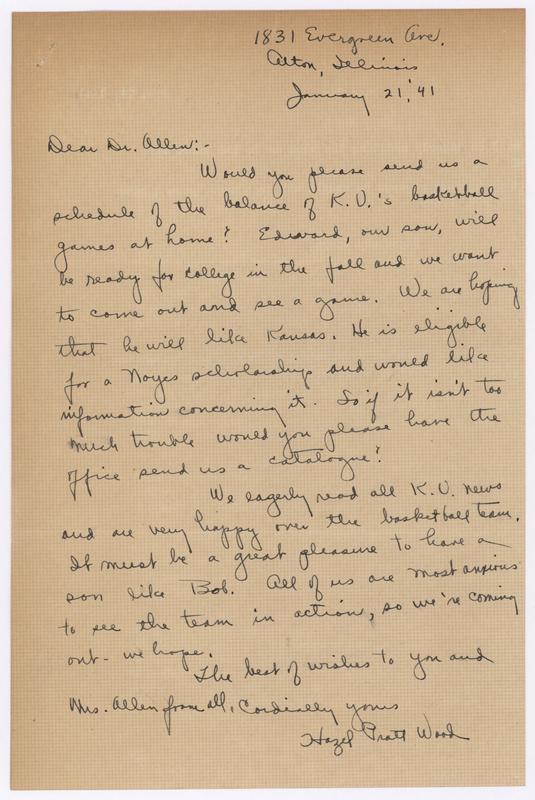 1831 Evergreen Ave.
Alton, Illinois
January 21, '41
Dear Dr. Allen:-
Would you please send us a
schedule of the balance of K.U.'s basketball
games at home? Edward, our son, will
be ready for college in the fall and we want
to come out and see a game. We are hoping
that he will like Kansas. He is eligible
for a Noyes scholarship and would like
information concerning it. So if it isn't too
much trouble would you please have the
office send us a catalogue?
We eagerly read all K.U. news
and are very happy over the basketball team.
It must be a great pleasure to have a
son like Bob. All of us are most anxious
to see the team in action, so we're coming
out - we hope.
The best of wishes to you and
Mrs. Allen from all, Cordially yours
Hazel Pratt Wood